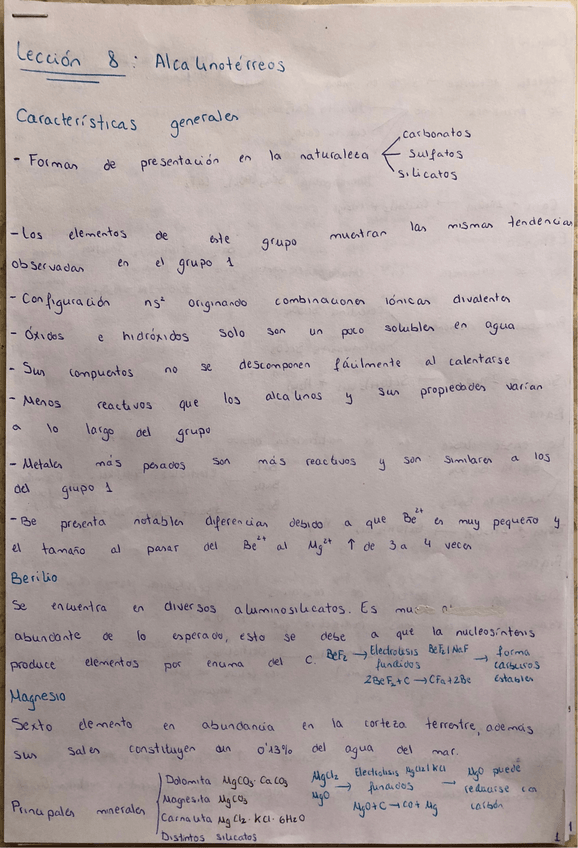 Lección 8: Alcalinotérreos
Características generales
- Formas de presentación en la naturaleza
carbonatos
sulfatos
silicatos
- Los elementos de este grupo muestran las mismas tendencias
observadas en el grupo 1
- Configuración ns² originando combinaciones iónicas divalentes
- Óxidos e hidróxidos solo son un poco solubles en agua
- Sus compuestos no se descomponen fácilmente al calentarse
- Menos reactivos que los alcalinos y sus propiedades varían
a lo largo del grupo
- Metales más pesados son más reactivos y son similares a los
del grupo 1
- Be presenta notables diferencias debido a que Be²⁺ es muy pequeño y
el tamaño al pasar del Be²⁺ al Mg²⁺ ↑ de 3 a 4 veces
Berilio
Se encuentra en diversos aluminosilicatos. Es
abundante de lo esperado, esto se debe a que la nucleosíntesis
produce elementos por encima del C.
BeF₂ → Electrolisis BeF₂/NaF fundidos → forma carburos estables
2BeF₂ + C → CF₄ + 2Be
Magnesio
Sexto elemento en abundancia en la corteza terrestre, además
sus sales constituyen un 0'13% del agua del mar.
Principales minerales
Dolomita MgCO₃·CaCO₃
Magnesita MgCO₃
Carnalita MgCl₂·KCl·6H₂O
Distintos silicatos
MgCl₂ MgO → Electrolisis MgCl₂/KCl fundidos → MgO puede reducirse con carbón
MgO + C → CO + Mg
1